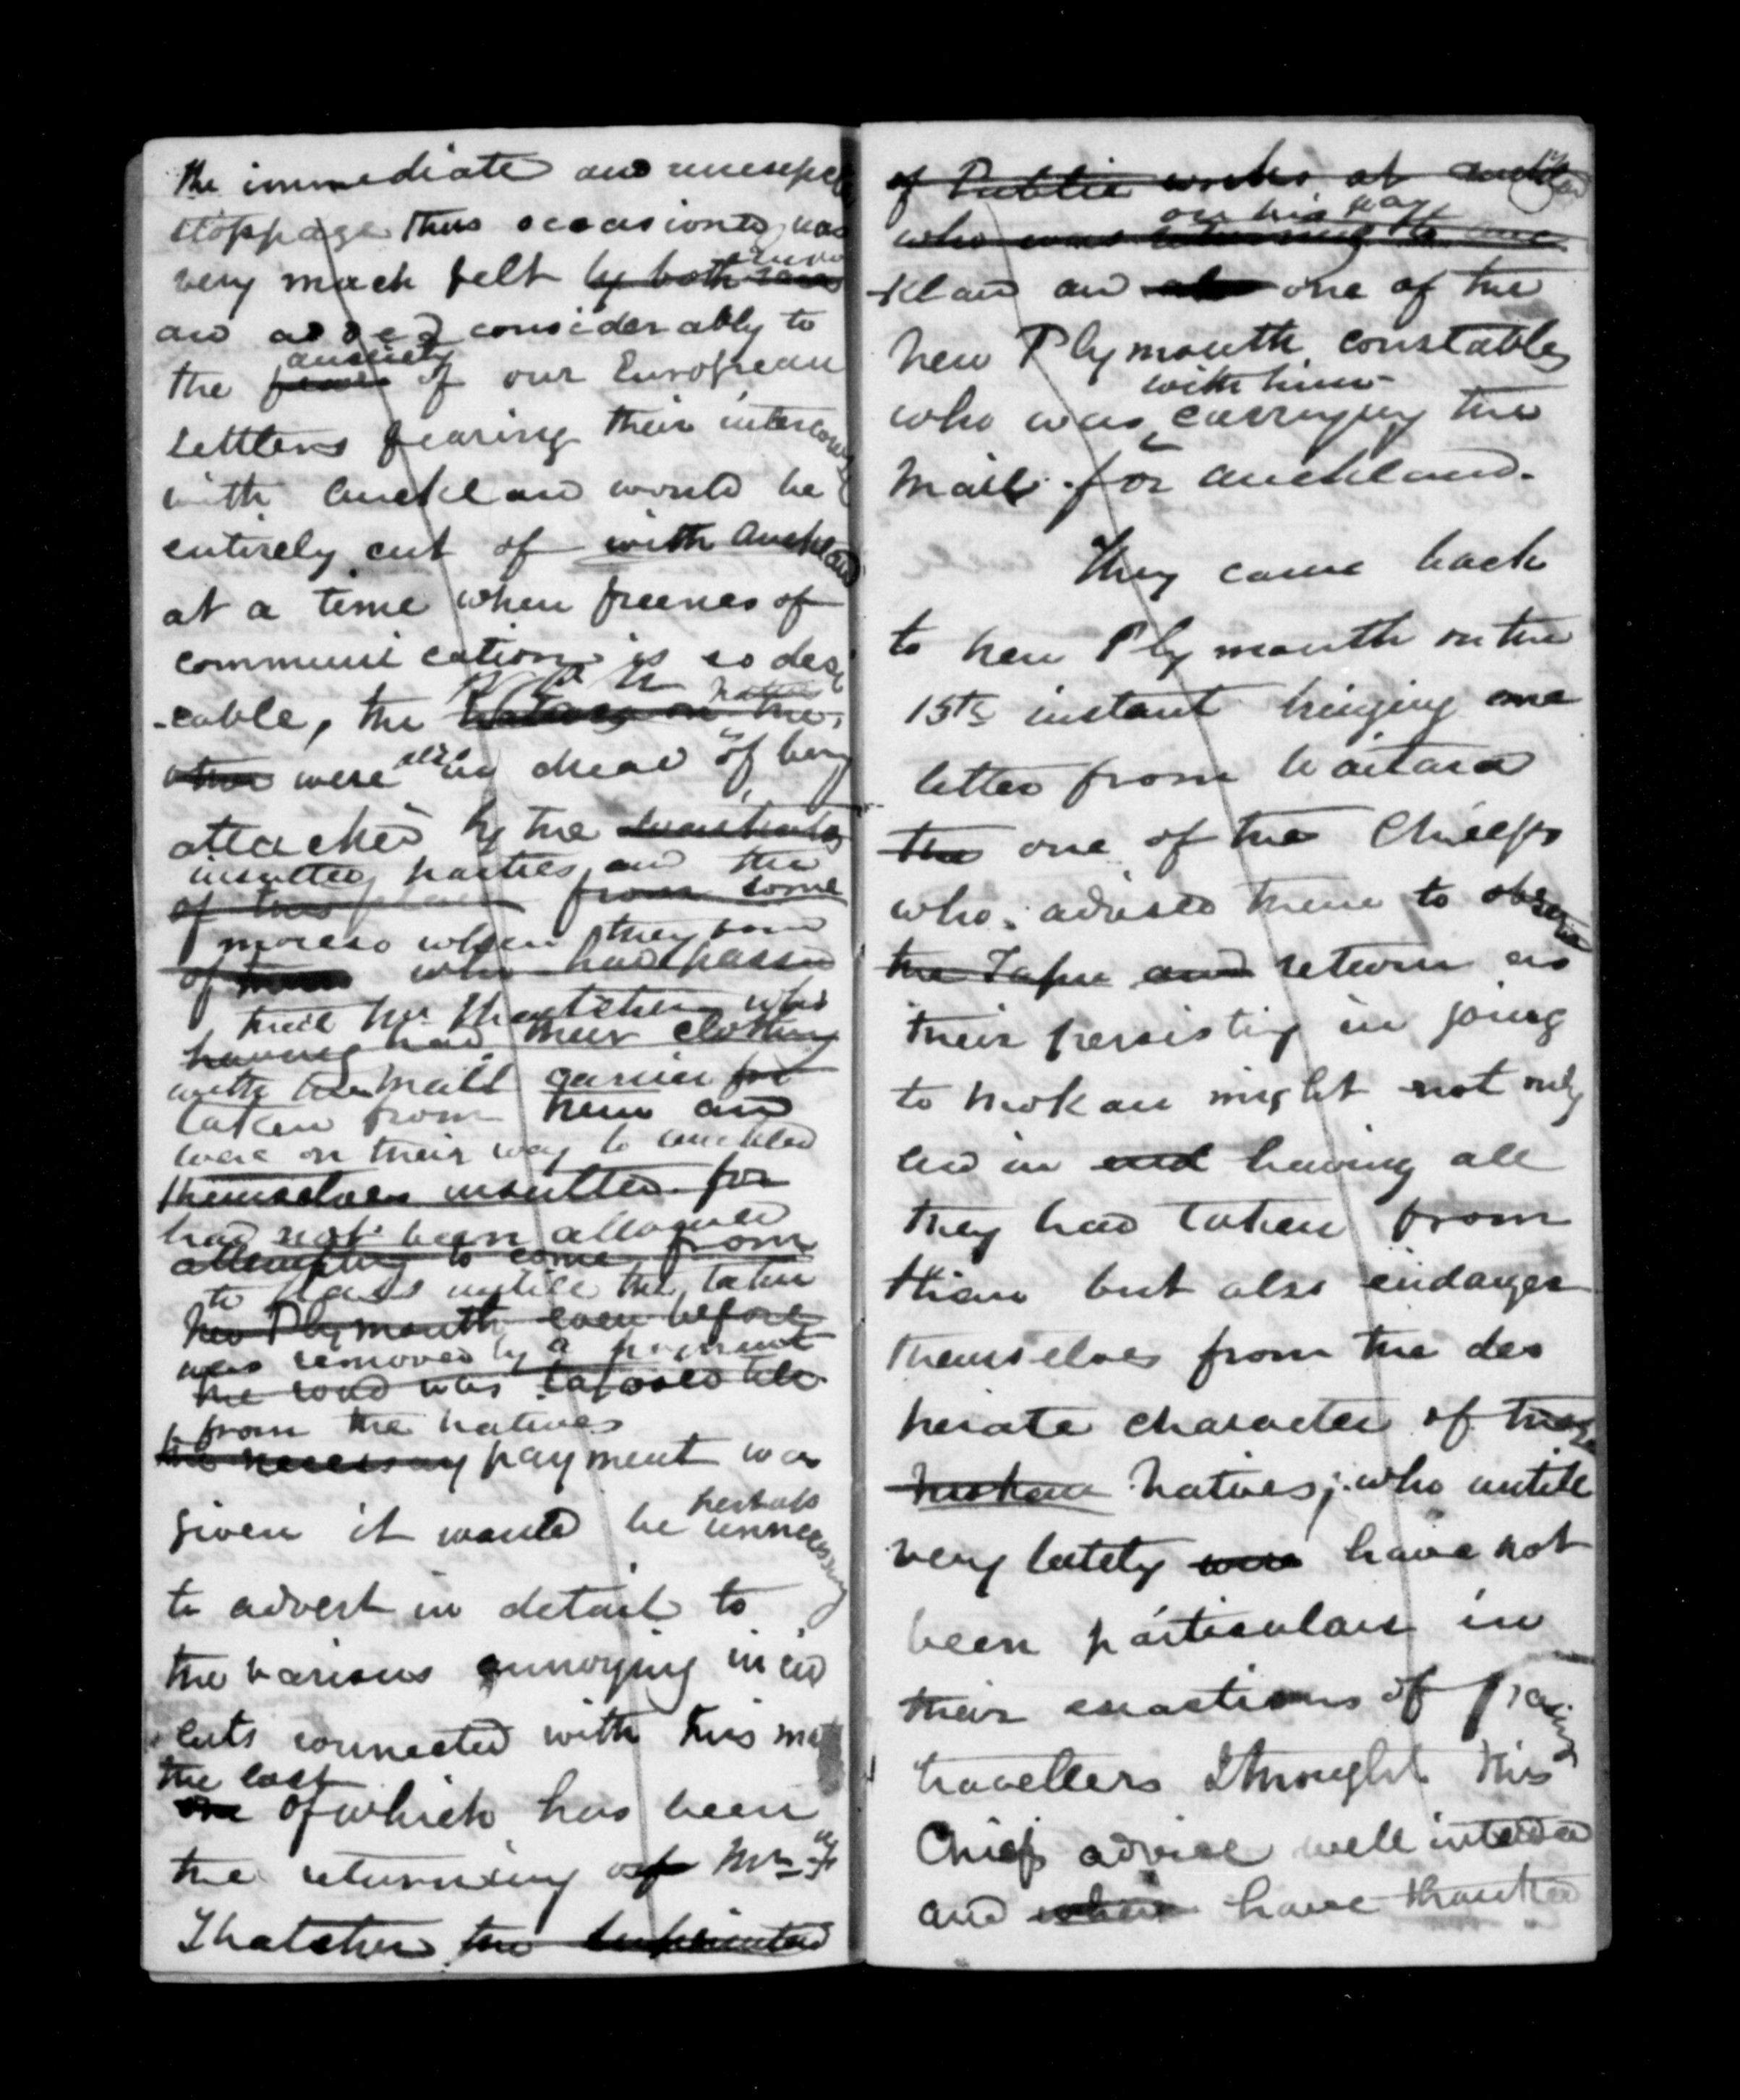 the immediate and unexpec
stoppage thus occasioned, was
very much felt by both
and added considerably to
anxiety
the of our European
settlers fearing their intercourse
with Auckland would be
entirely cut of with Auckland
at a time when freenes of
communication is so desi
-cable, the
other were also in dread of being
attached by the
insulted parties, and the
of this place from some
moreso when they
of them who had passed
Thatcher who
having had their clothing
with the Mail carrier for
taken from them and
were on their way to Auckland
themselves insulted for
had not been allowed
attempting to come from
to pass untill the tabu
New Plymouth even before
was removed by a payment
the road was tabooed till
from the natives
the necessary payment was
perhaps
given it would be unnecessary
to advert in detail to
the various annoying incid
ents connected with this mat
the last
one of which has been
the returning of Mr
Thatcher the Superintend
of Public works at Auckland
on his way
who was returning to Auc
-kland and one of the
New Plymouth constables
with him
who was carrying the
Mail for Auckland.
They came back
to New Plymouth on the
15th instant bringing one
letter from Waitara
the one of the Chiefs
who advised them to observe
the Tapu and return as
their persisting in going
to Mokau might not only
end in end having all
they had taken from
them but also endanger
themselves from the des
perate character of these
Mokau Natives; who untill
very lately were have not
been particular in
their exactions of passing
travellers I thought this
Chiefs advice well intended
and have thanked